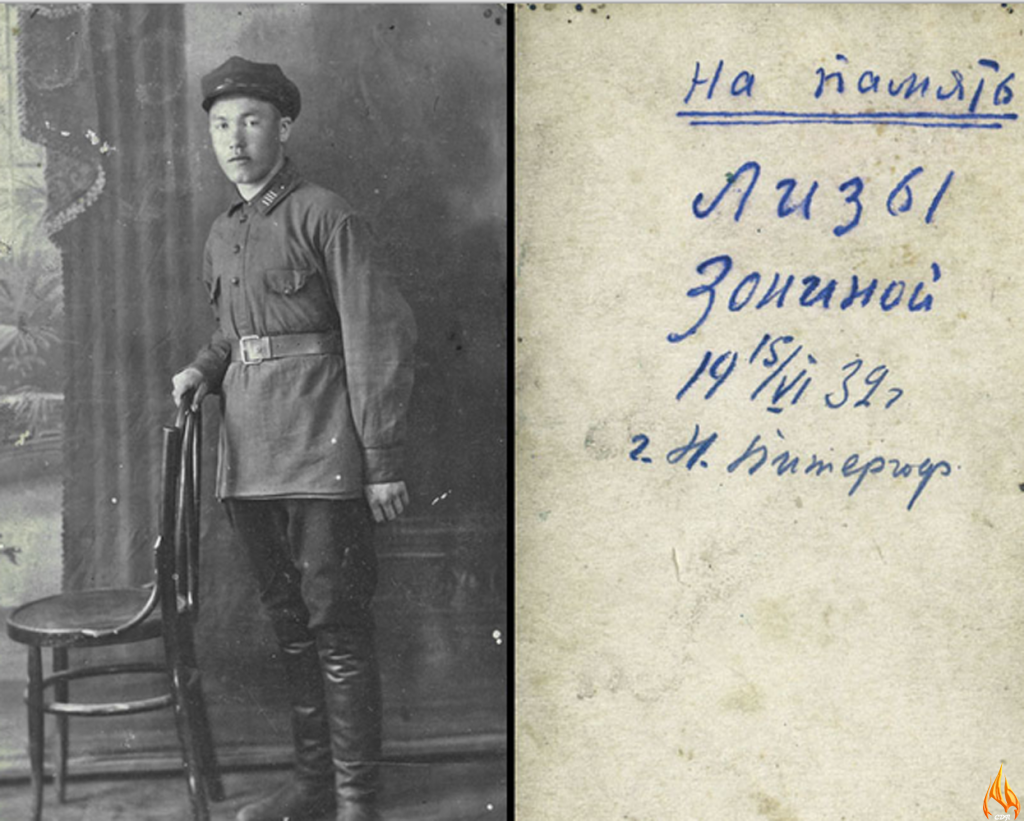 На память
Лизы
Зониной
19 15/VI 32г
г. Н. Питергоф.